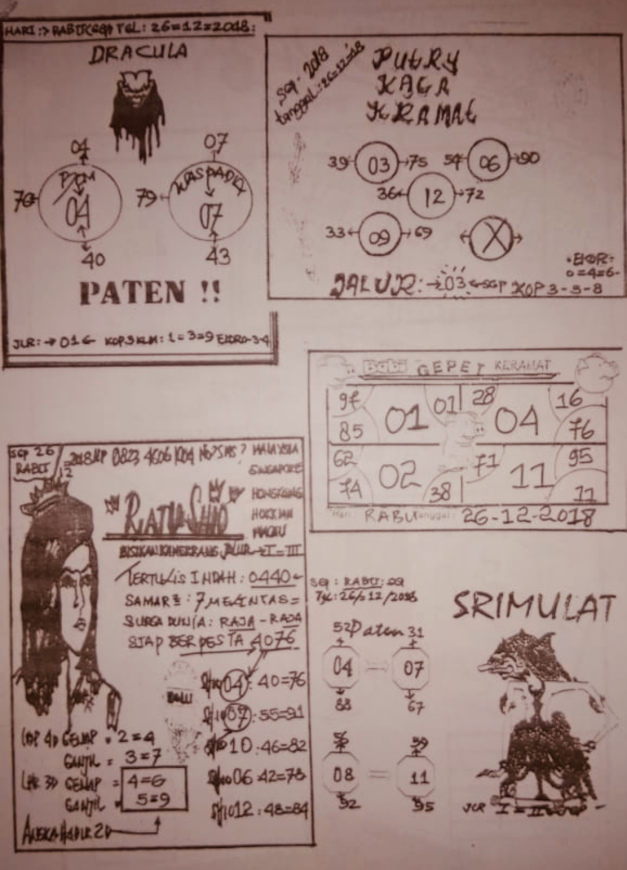 HARI :> RABU(SGP) TGL : 26=12=2018:
DRACULA
04 07
70 04 79 WASPADA 07
40 43
PATEN !!
JLR: → 016 KOP3 KLM: 1=3=9 EKOR0-3-4
SGP - 2018
tanggal: 26=12=18
PUTRY
KACA
KRAMAT
39 03 75 54 06 90
36 12 72
33 09 69 X
EKOR:
0=4=6-
JALUR: → 03 ← SGP KOP 3-5-8
BABI GEPET KERAMAT
97 01 01 28 04 16
85 76
62 02 71 11 95
74 38 11
Hari: RABU Tanggal: 26-12-2018
SGP 26
RABU 12
2018 HP 0823 4606 1004 No? SMS? MALAYSIA
SINGAPORE
HONGKONG
MACAU
RATU SHIO
JALUR → I = III
TERTULIS INDAH : 0440
SAMAR²: 7 MELINTAS =
SURGA DUNIA: RAJA - RAJA
SIAP BERPESTA 4076
04: 40=76
07: 55=91
10: 46=82
06 42=78
12: 48=84
COP 4D GENAP = 2=4
GANJIL = 3=7
GENAP = 4=6
GANJIL = 5=9
SGP : RABU: SGP
TGL: 26/12/2018
SRIMULAT
52 Paten 31
04 = 07
88 67
56 59
08 = 11
92 95
JLR I = II